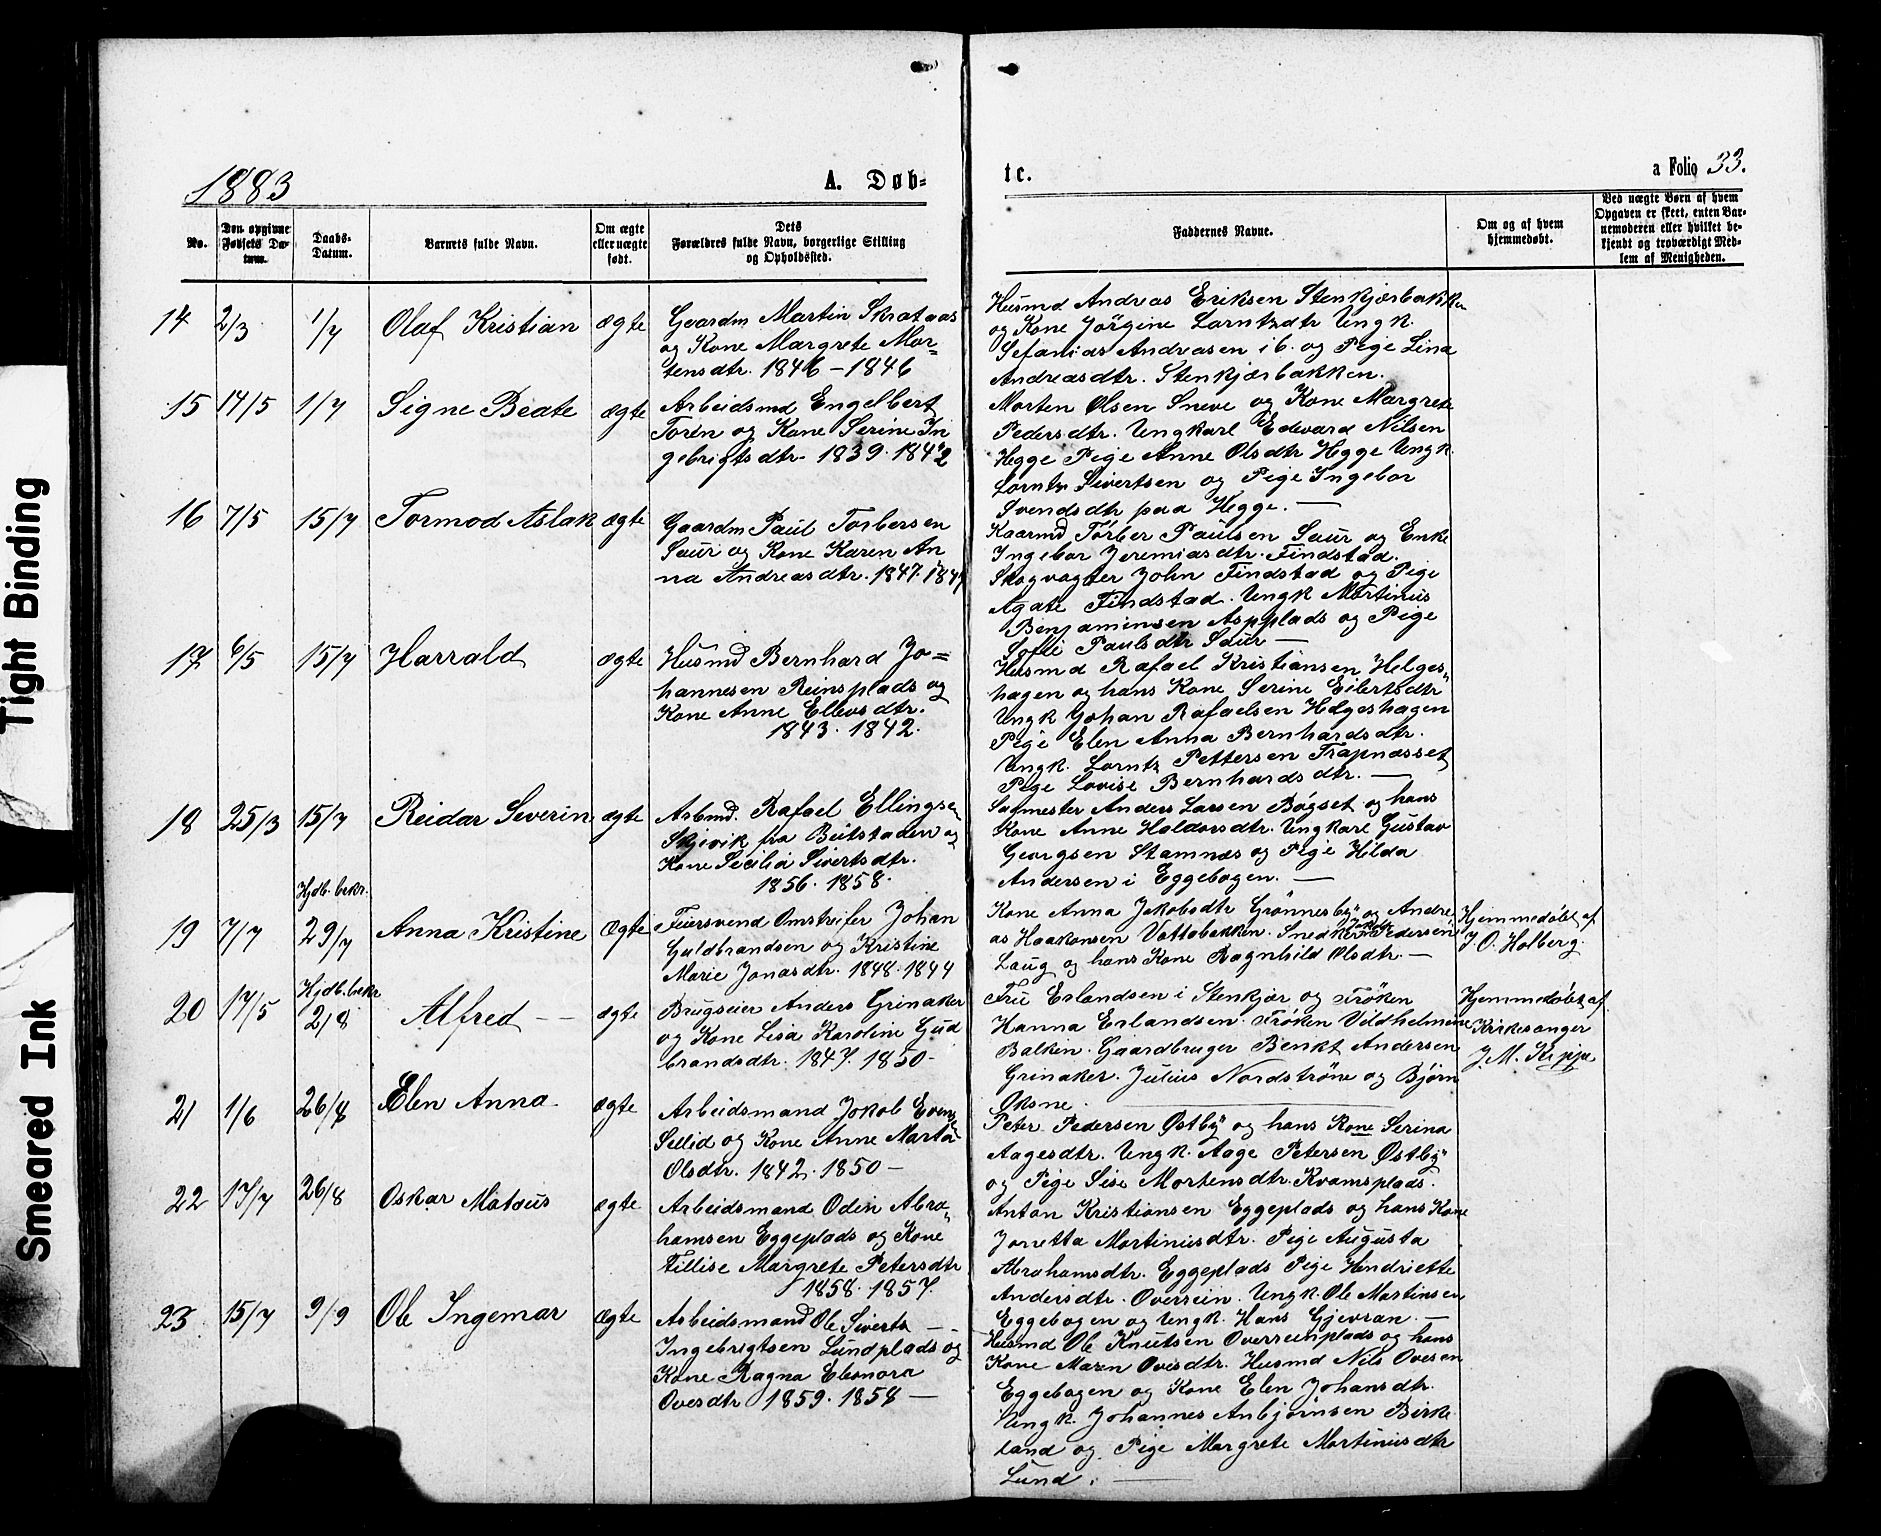 Tight Binding
Smeared Ink
1883
A. Døb=
te.
a Folio 33.
No.
Den opgivne
Fødsels Da=
tum.
Daabs=
Datum.
Barnets fulde Navn.
Om ægte
eller uægte
født.
Dets
Forældres fulde Navn, borgerlige Stilling
og Opholdssted.
Faddernes Navne.
Om og af hvem
hjemmedøbt.
Ved uægte Børn af hvem
Opgaven er skeet, enten Bar=
nemoderen eller hvilket be=
kjendt og troværdigt Med=
lem af Menigheden.
14 2/3 1/7 Olaf Kristian ægte
Gaardm Martin Skrataas
og Kone Margrete Mor=
tensdtr. 1846 – 1846
Husmd Andreas Eriksen Stenkjærbakken
og Kone Jørgine Larntzdtr Ungk.
Sefanias Andreasen ib. og Pige Lina
Andreasdtr. Stenkjærbakken.
15 14/5 1/7 Signe Beate ægte
Arbeidsmd Engelbert
Toren og Kone Serine In
gebrigtsdtr. 1839. 1842
Morten Olsen Sneve og Kone Margrete
Pedersdtr. Ungkarl Edevard Nilsen
Hegge Pige Anne Olsdtr Hegge Ungk.
Lorntz Sivertsen og Pige Ingebor
Svendsdtr paa Hegge. —
16 7/5 15/7 Tormod Aslak ægte
Gaardm Paul Torbersen
Saur og Kone Karen An
na Andreasdtr. 1847.
Kaarmd Torber Paulsen Saur og Enke
Ingebor Jeremiasdtr. Findstad.
Skogvogter John Findstad og Pige
Agate Findstad. Ungk Martinus
Benjaminsen Aspplads og Pige
Sofie Paulsdtr Saur —
17 6/5 15/7 Harrald ægte
Husmd Bernhard Jo=
hannesen Reinsplads og
Kone Anne Ellevsdtr.
1843. 1842.
Husmd Rafael Kristiansen Helges=
hagen og hans Kone Serine Eilertsdtr
Ungk Johan Rafaelsen Helgeshagen
Pige Elen Anna Bernhardsdtr.
Ungk. Lorntz Pettersen Trapnæsset
Pige Lovise Bernhardsdtr. —
18 25/3 15/7 Reidar Severin ægte
Arbmd. Rafael Ellingsen
Skjevik fra Beitstaden og
Kone Secilia Sivertsdtr.
1856. 1858.
Sagmester Anders Larsen Bøgset og hans
Kone Anne Haldorsdtr. Ungkarl Gustav
Georgsen Stamnæs og Pige Hilda
Andersen i Eggebogen. —
Hjdb. bekr.
19 7/7 29/7 Anna Kristine Ægte
Feiersvend Omstreifer Johan
Guldbrandsen og Kristine
Marie Jonasdtr. 1848. 1844
Kone Anna Jakobsdtr Grønnesby og Andre
as Haakonsen Vattobakken. Snedker Jakob Pedersen
Laug og hans Kone Ragnhild Olsdtr. —
Hjemmedøbt af
J. O. Holberg.
Hjdb. bekr
20 17/5 2/8 Alfred — — ægte
Brugseier Anders Grinaker
og Kone Lisa Karoline Gud
brandsdtr. 1847. 1850 –
Fru Erlandsen i Stenkjær og Frøken
Hanna Erlandsen. Frøken Vildhelmine
Balkin. Gaardbruger Benkt Andersen
Grinaker. Julius Nordstrøne og Bjørn
Oksne.
Hjemmedøbt af
Kirkesanger
J. M. Kippe
21 1/6 26/8 Elen Anna ægte
Arbeidsmand Jakob Evens
Sellid og Kone Anne Marta
Olsdtr. 1842. 1850 –
Peter Pedersen Østby og hans Kone Serina
Aagesdtr. Ungk. Aage Petersen Østby
og Pige Sise Mortensdtr. Kvamsplads.
22 17/7 26/8 Oskar Mataus ægte
Arbeidsmand Odin Abra=
hamsen Eggeplads og Kone
Tillise Margrete Petersdtr
1858. 1857.
Anton Kristiansen Eggeplads og hans Kone
Jonetta Martinusdtr. Pige Augusta
Abrahamsdtr. Eggeplads Pige Hendriette
Andersdtr. Overrein. Ungk. Ole Martinsen
Eggebogen og Ungk. Hans Gjevran. —
23 15/7 9/9 Ole Ingemar ægte
Arbeidsmand Ole Siverts —
Ingebrigtsen Lundplads og
Kone Ragna Eleonora
Ovesdtr 1859. 1858 —
Husmd Ole Knutsen Overreinplads og hans
Kone Maren Ovesdtr. Husmd Nils Ovesen
Eggebogen og Kone Elen Johansdtr.
Ungk. Johannes Anbjørnsen Birke
land og Pige Margrete Martinusdtr
Lund.